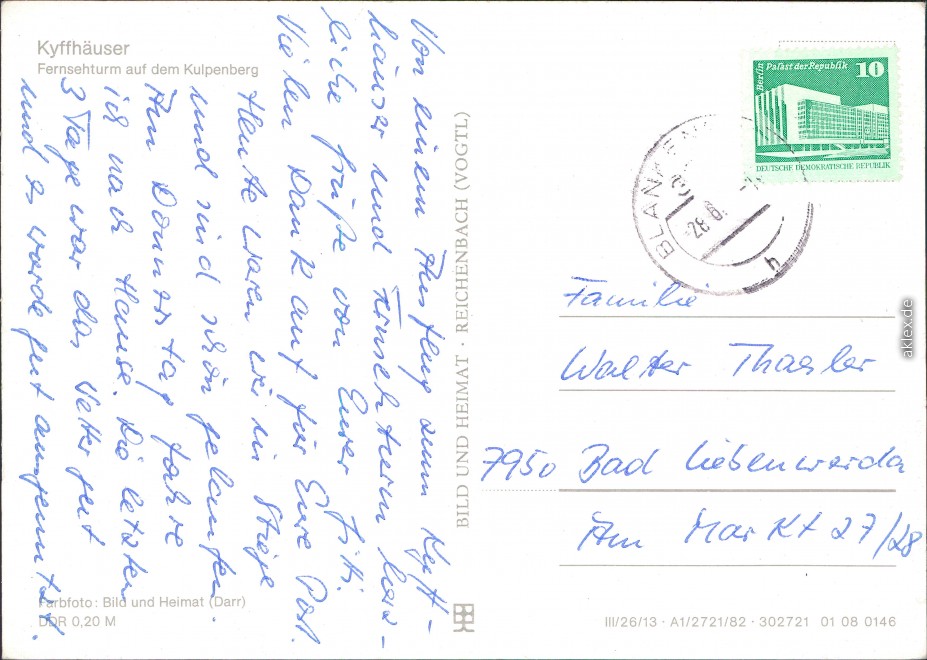 Kyffhäuser
Fernsehturm auf dem Kulpenberg
Von einem Ausflug zum Kyff-
häuser und Fernsehturm herz-
liche Grüße von Eurer Fitti.
Vielen Dank auf für Eure Post.
Heute waren wir in Stiege
und sind schön gelaufen.
Am Donnerstag fahre
ich nach Hause. Die letzten
3 Tage war das Wetter gut
und es wurde gut ausgenutzt.
Farbfoto: Bild und Heimat (Darr)
DDR 0,20 M
BILD UND HEIMAT · REICHENBACH (VOGTL)
Berlin Palast der Republik 10
DEUTSCHE DEMOKRATISCHE REPUBLIK
28.6.
h
Familie
Walter Thaeler
7950 Bad Liebenwerda
Am Markt 27/28
III/26/13 · A1/2721/82 · 302721 01 08 0146
aklex.de